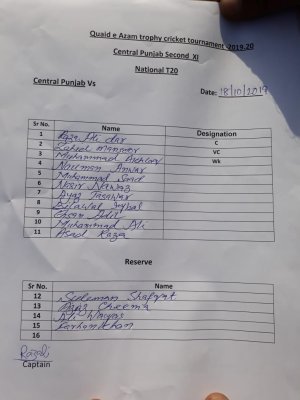 Quaid e Azam trophy cricket tournament 2019.20
Central Punjab Second XI
National T20
Central Punjab Vs
Date: 18/10/2019
Sr No. Name Designation
1 Raza Ali dar C
2 Zahid mansoor VC
3 Muhammad Akhlaq Wk
4 Nouman Anwar
5 Muhammad Saad
6 Nasir Nawaz
7 Ayaz Tasawar
8 Bilawal Iqbal
9 Ehsan Adil
10 Muhammad Ali
11 Asad Raza
Reserve
Sr No. Name
12 Suleman Shafqat
13 Aizaz Cheema
14 Ali Waqas
15 Farhan khan
16
Captain